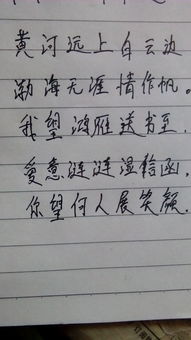 黄河远上白云边
渤海无涯情作帆.
我望鸿雁送书至.
爱意涟涟湿信函.
你望何人展笑颜.